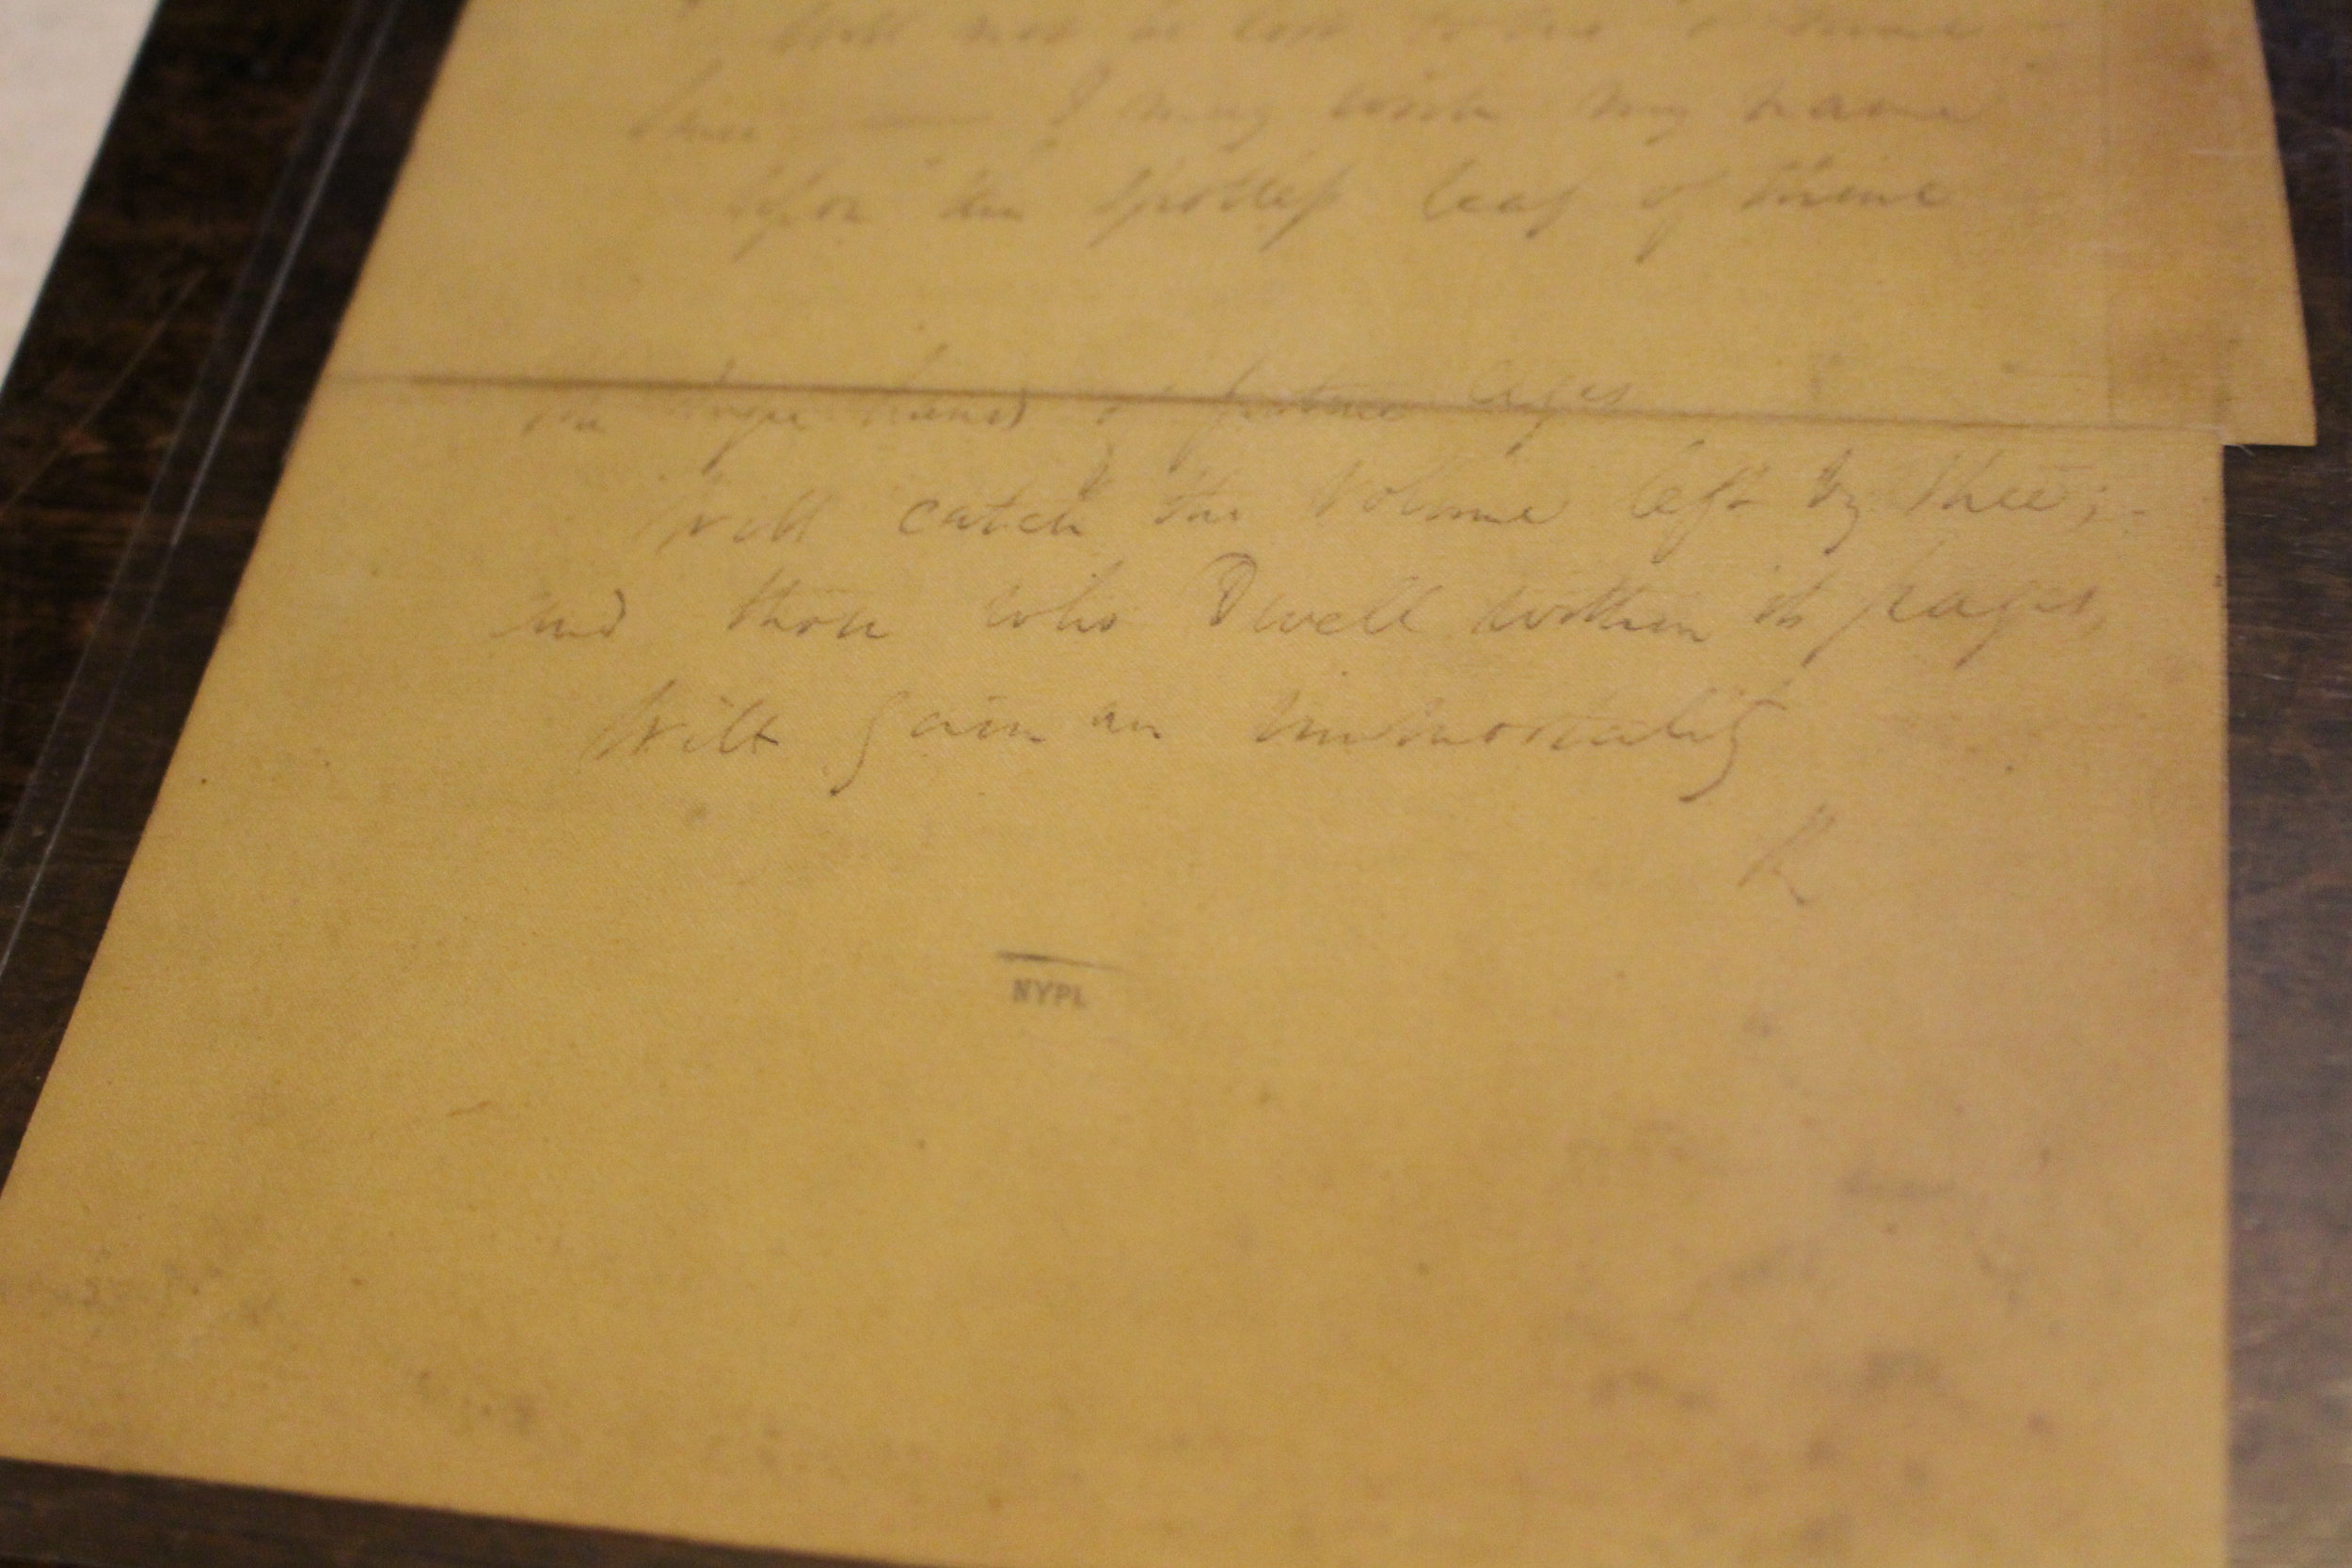 will not be
Since I may write my name
Upon the spotless leaf of thine
The eager hands of future ages
Will catch the Volume left by thee;
and those who Dwell within its pages,
Will gain an immortality
R
NYPL